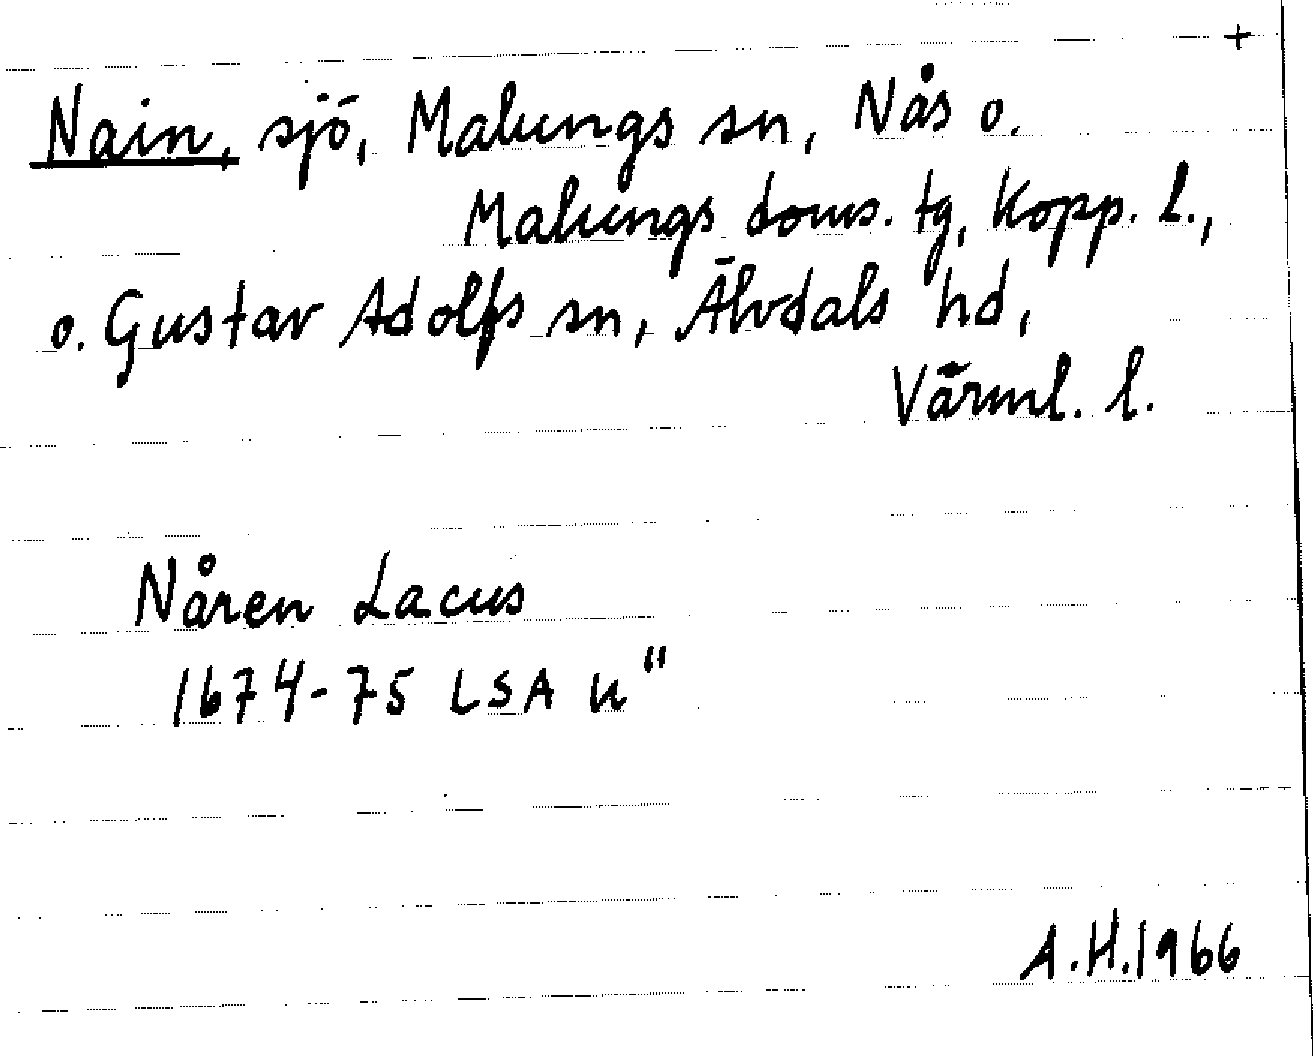 +
Nain, sjö, Malungs sn, Nås o.
Malungs doms. tg, Kopp. l.,
o. Gustav Adolfs sn, Älvdals hd,
Värml. l.
Nåren Lacus
1674-75 LSA u"
A.H.1966